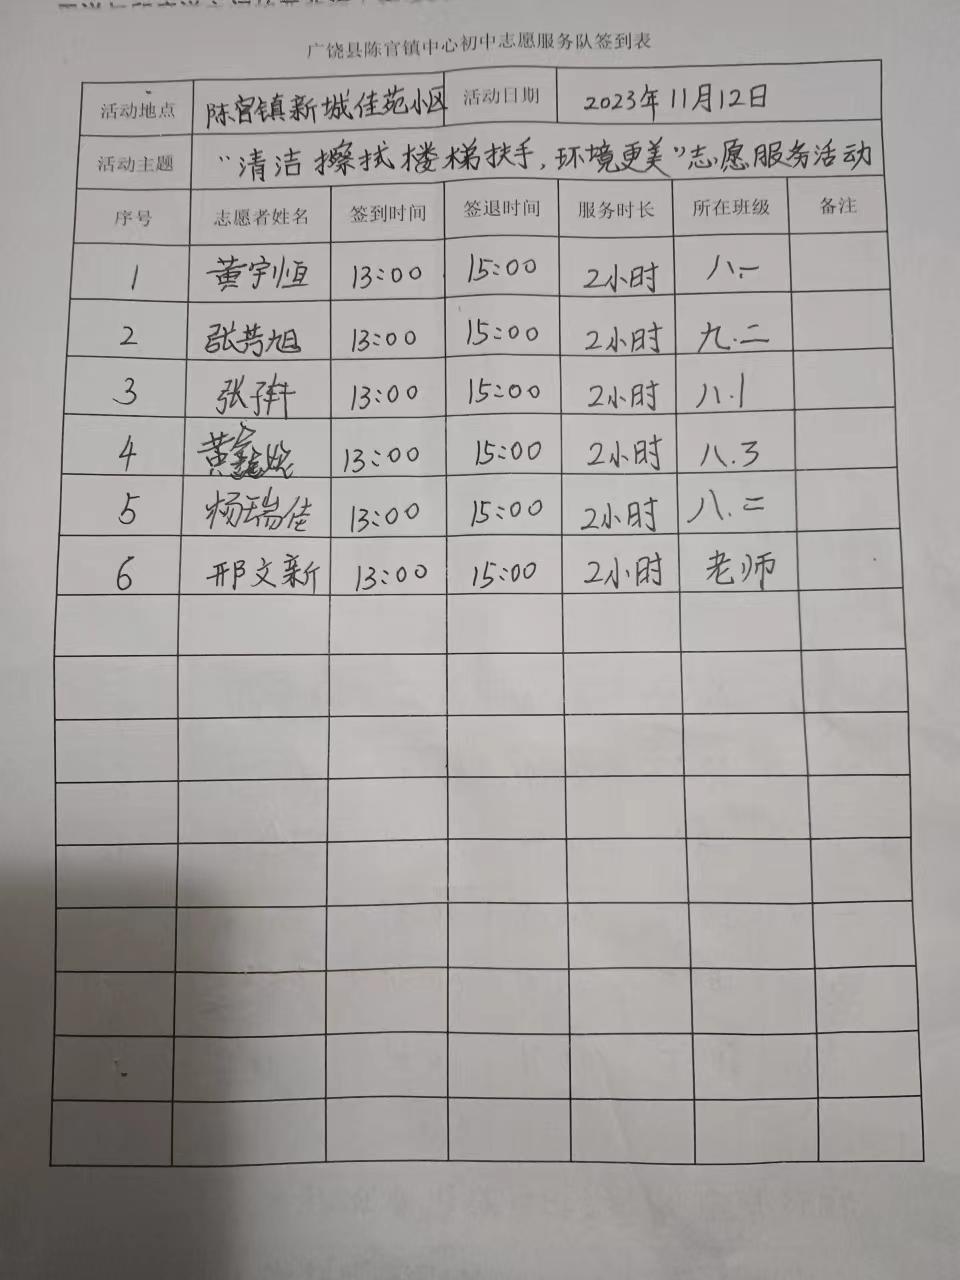 广饶县陈官镇中心初中志愿服务队签到表
活动地点 陈官镇新城佳苑小区 活动日期 2023年11月12日
活动主题 "清洁擦拭楼梯扶手,环境更美"志愿服务活动
序号 志愿者姓名 签到时间 签退时间 服务时长 所在班级 备注
1 黄宇恒 13:00 15:00 2小时 八.一
2 张芮旭 13:00 15:00 2小时 九.二
3 张子轩 13:00 15:00 2小时 八.1
4 黄 13:00 15:00 2小时 八.3
5 杨瑞佳 13:00 15:00 2小时 八.二
6 邢文新 13:00 15:00 2小时 老师